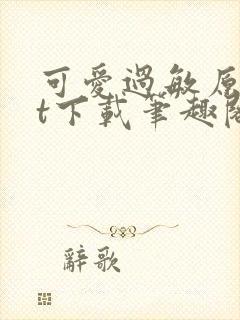 可愛過敏原
t下載筆趣閣
辭歌